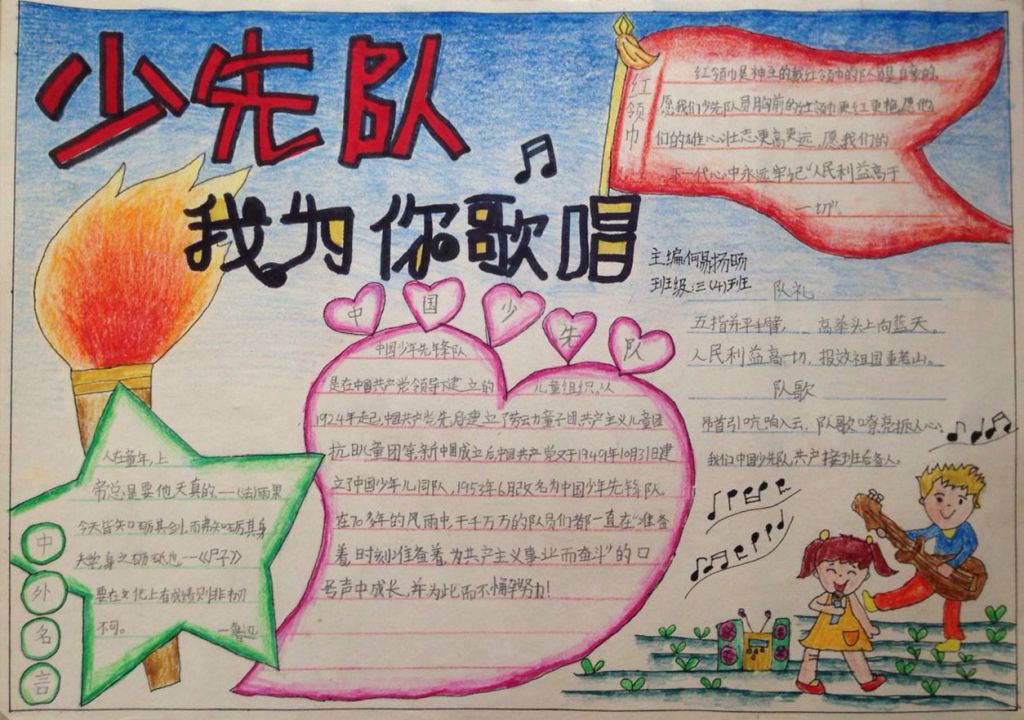 少先队
我为你歌唱
红领巾
红领巾是神圣的戴红领巾的队员是自豪的。
愿我们少先队员胸前的红领巾更红更艳,愿他
们的雄心壮志更高更远,愿我们的
下一代心中永远牢记“人民利益高于
一切”。
主编:何易扬旸
班级:三(4)班
队礼
五指并平手臂, 高举头上向蓝天。
人民利益高一切,报效祖国重若山。
队歌
昂首引吭响入云,队歌嘹亮振人心。
我们中国少先队,共产接班后备人。
中国少先队
中国少年先锋队
是在中国共产党领导下建立的 儿童组织。从
1924年起,中国共产党先后建立了劳动童子团共产主义儿童团
抗日儿童团等,新中国成立后中国共产党又于1949年10月31日建
立了中国少年儿同队,1953年6月改名为中国少年先锋队。
在70多年的风雨中,千千万万的队员们都一直在“准备
着,时刻准备着,为共产主义事业而奋斗”的口
号声中成长,并为此而不懈努力!
中外名言
人在童年,上
帝总是要他天真的——(法)雨果
今天皆知砺其剑,而弗知砺其身
夫学,身之砺砥也——《尸子》
要在文化上有成绩则非韧
不可。 —鲁迅